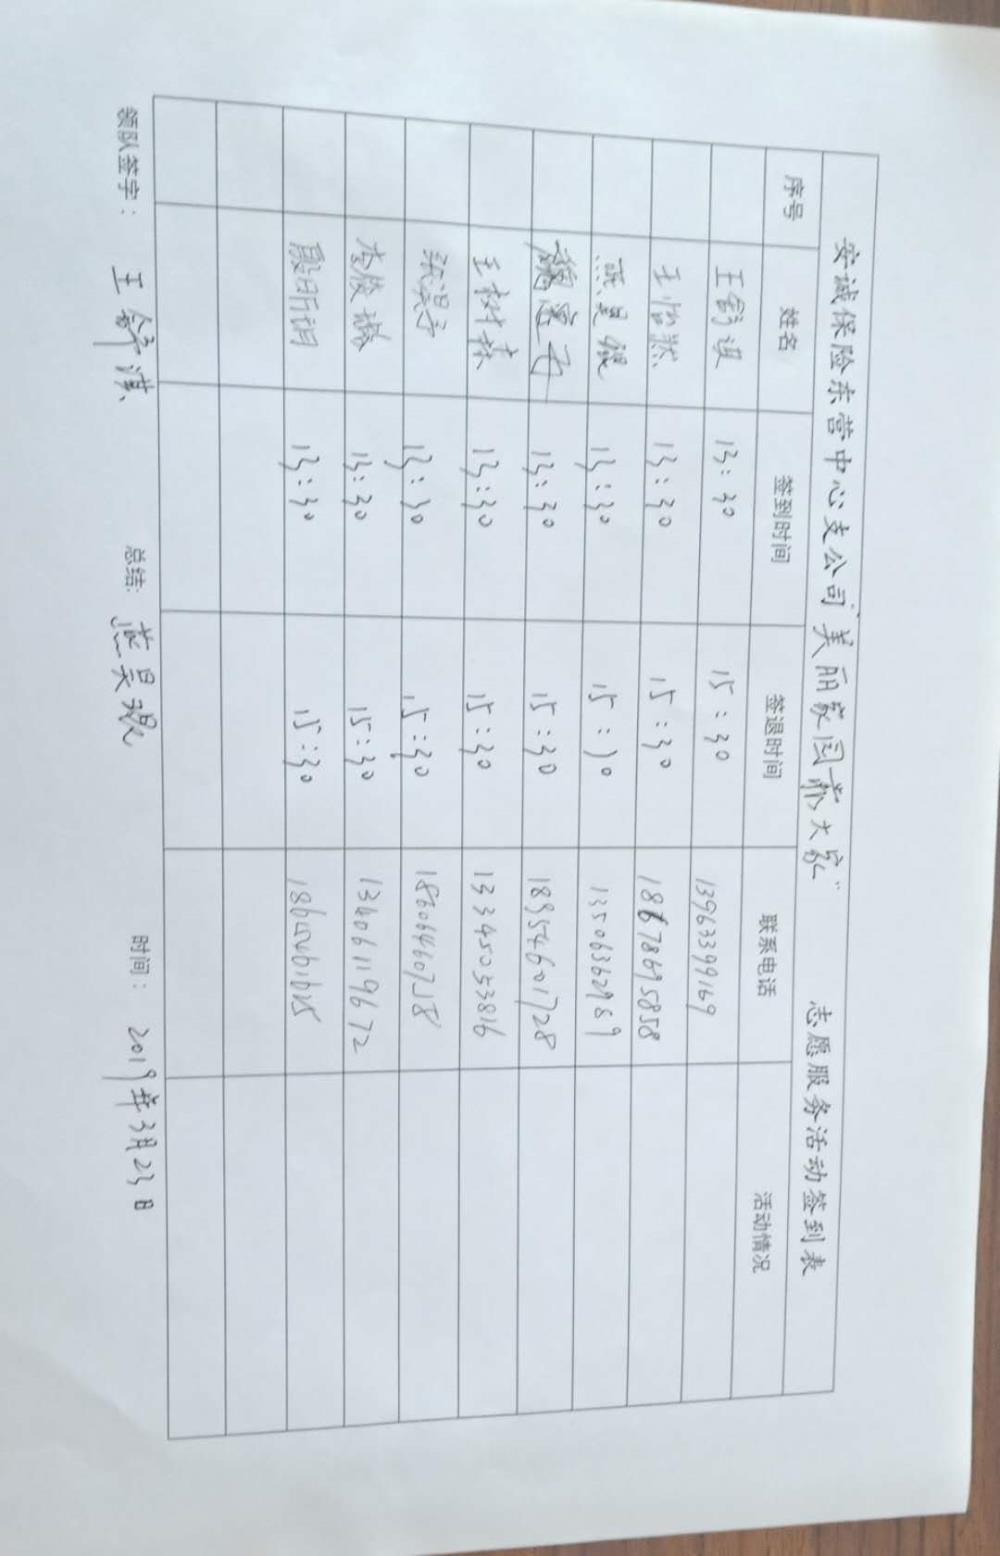 安诚保险东营中心支公司“美丽家园靠大家” 志愿服务活动签到表
序号 姓名 签到时间 签退时间 联系电话 活动情况
王舒淇 13:30 15:30 13963399169
王怡然 13:30 15:30 18678695858
燕昊锟 13:30 15:30 13506362989
13:30 15:30 18954601728
王树森 13:30 15:30 13345053816
13:30 15:30
李俊 13:30 15:30 13406119672
13:30 15:30
领队签字: 王舒淇 总结: 燕昊锟 时间: 2019年3月23日